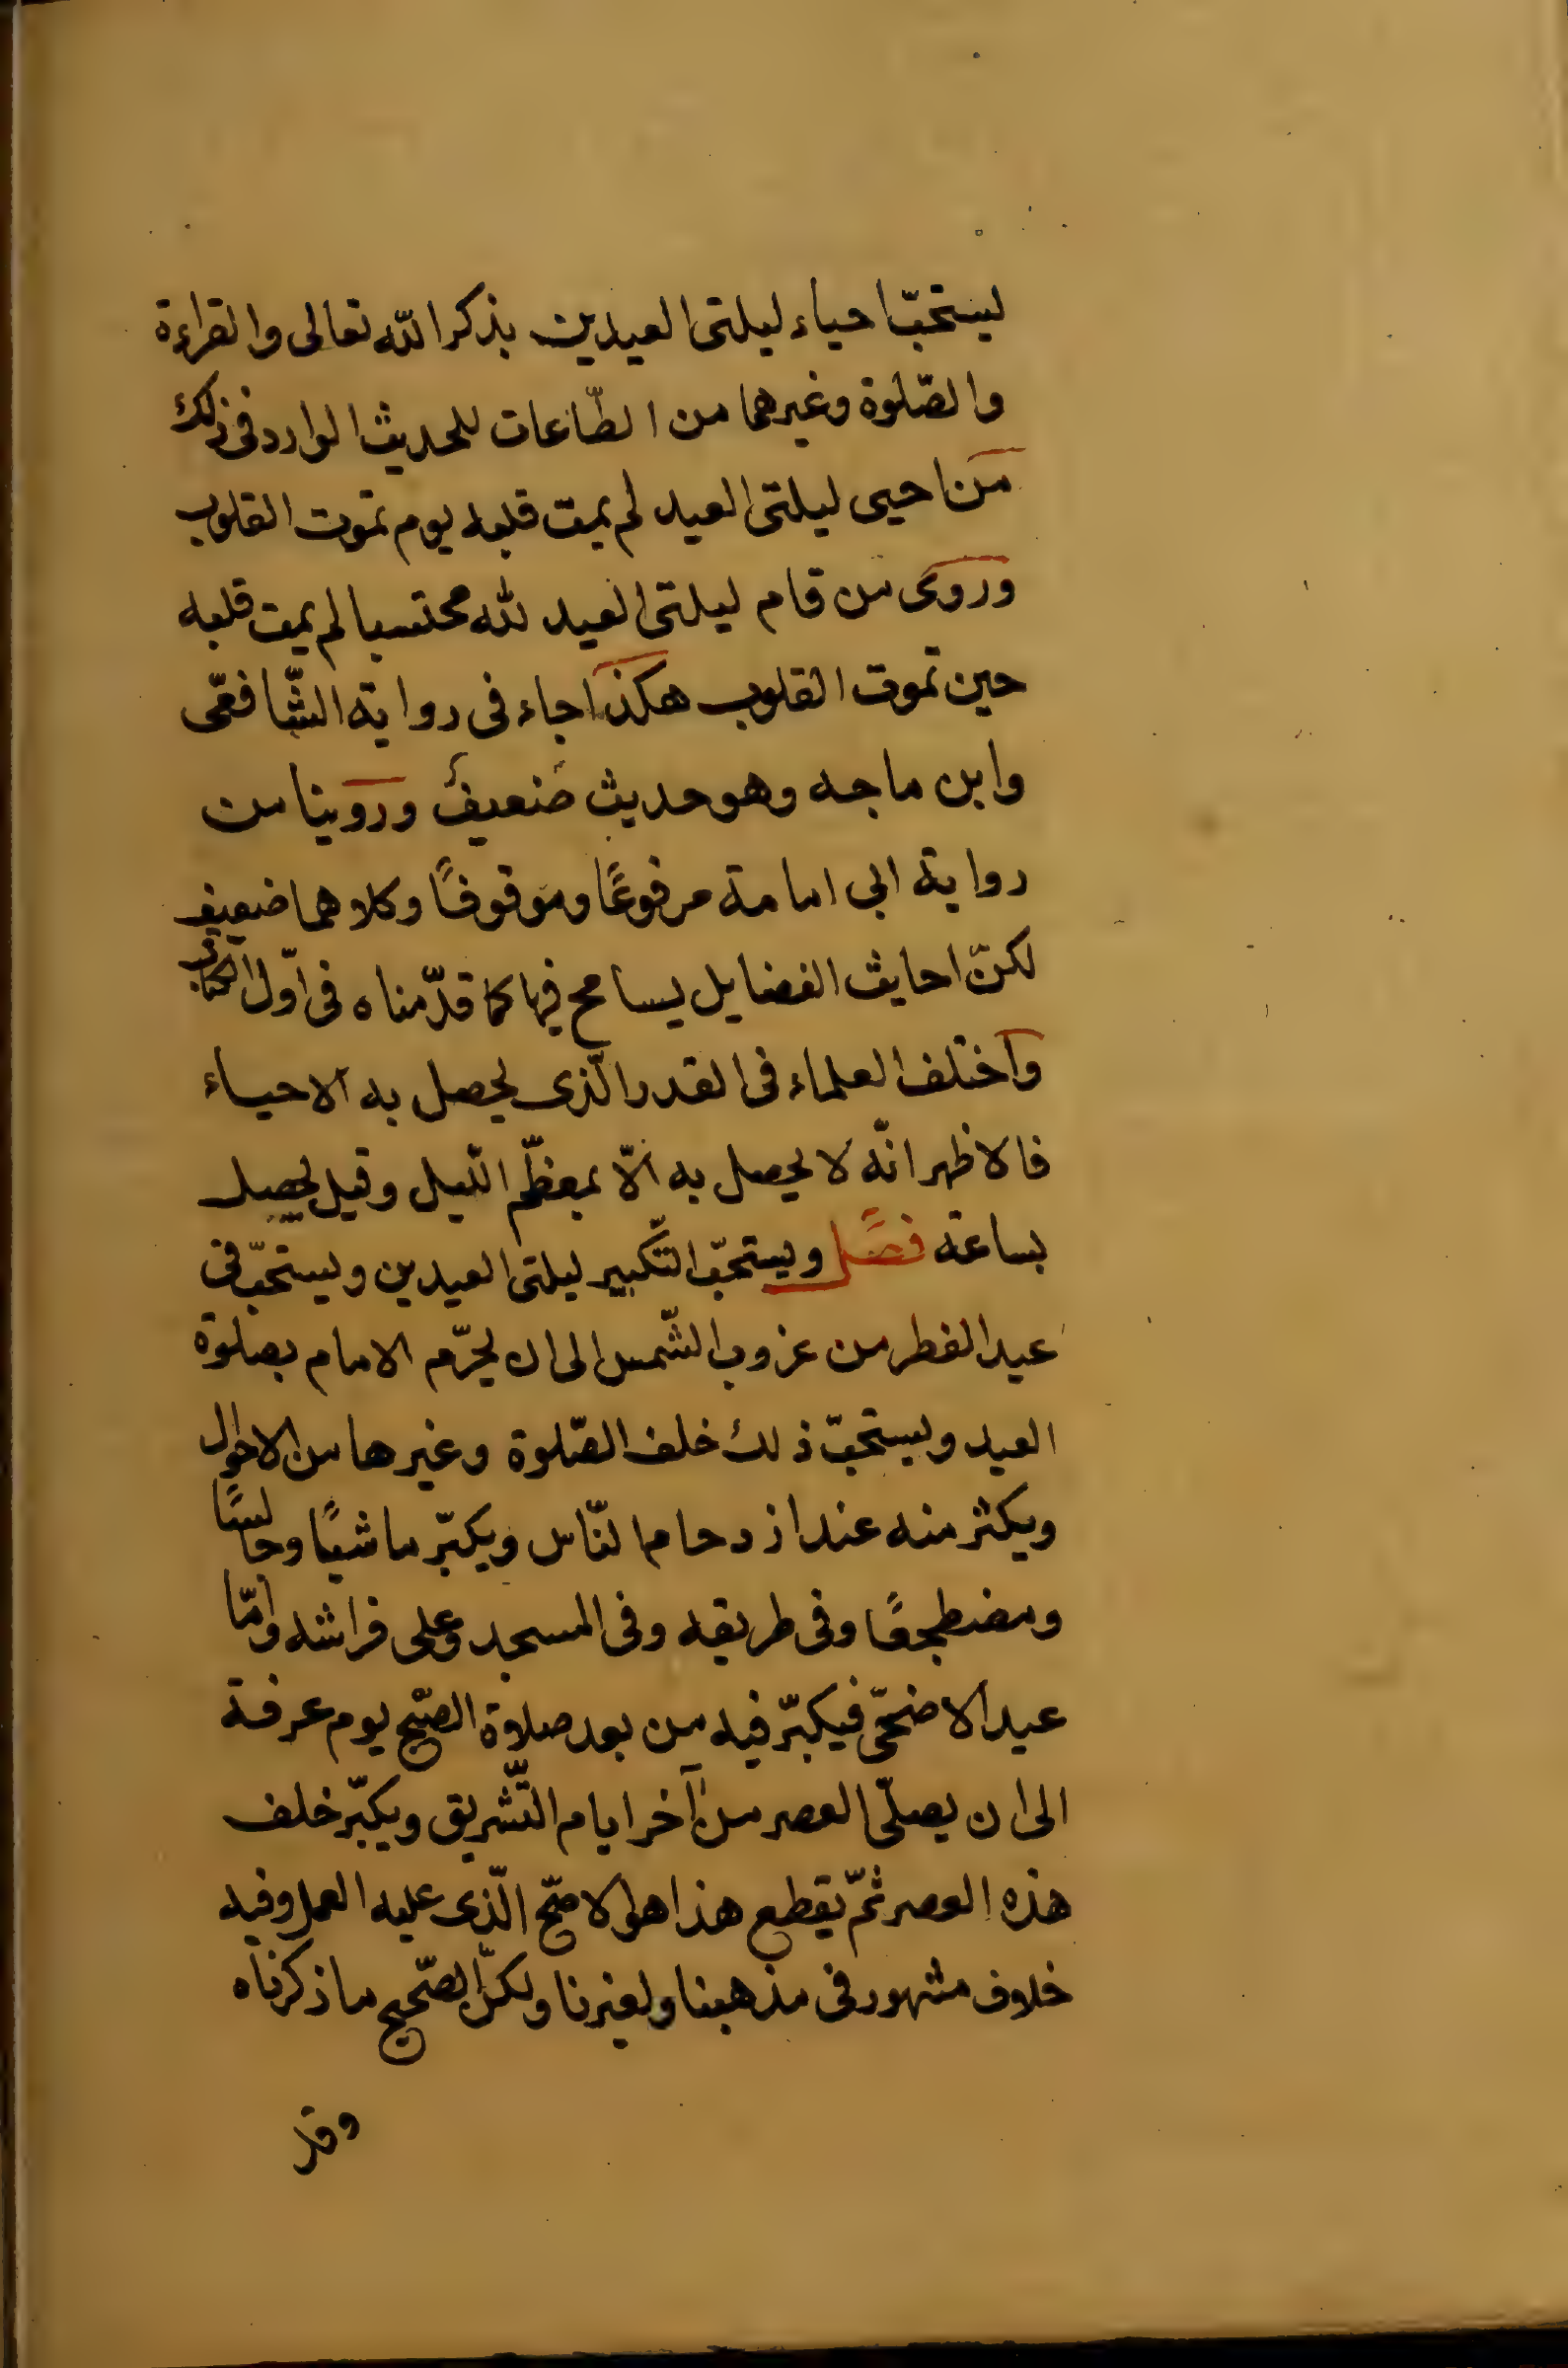 ليستحبّ احياء ليلتى العيدين بذكر الله تعالى والقراءة
والصّلوة وغيرهما من الطّاعات للحديث الوارد فى ذلك
من احيى ليلتى العيد لم يمت قلبه يوم تموت القلوب
وروى من قام ليلتى العيد لله محتسبا لم يمت قلبه
حين تموت القلوب هكذا جاء فى رواية الشّافعّى
وابن ماجه وهو حديث ضعيف وروينا من
رواية ابى امامة مرفوعًا وموقوفًا وكلاهما ضعيف
لكنّ احايث الفضايل يسامح فيها كما قدّمناه فى اوّل الكتاب
واختلف العلماء فى القدر الّذى يحصل به الاحياء
فالاظهر انّه لا يحصل به الّا بمعظّم اللّيل وقيل يحصل
بساعة فصل ويستحبّ التّكبير ليلتى العيدين ويستحبّ فى
عيد الفطر من غروب الشّمس الى ان يحرّم الامام بصلوة
العيد ويستحبّ ذلك خلف الصّلوة وغيرها من الاحوال
ويكثر منه عند ازدحام النّاس ويكبّر ماشيًا وجالسًا
ومضطجعًا وفى طريقه وفى المسجد وعلى فراشه وامّا
عيد الاضحّى فيكبّر فيه من بعد صلاة الصّبح يوم عرفة
الى ان يصلّى العصر من آخر ايام التّشريق ويكبّر خلف
هذه العصر ثمّ يقطع هذا هو الاصّح الّذى عليه العمل وفيه
خلاف مشهور فى مذهبنا ولغيرنا ولكنّ الصّحيح ما ذكرناه
وقد